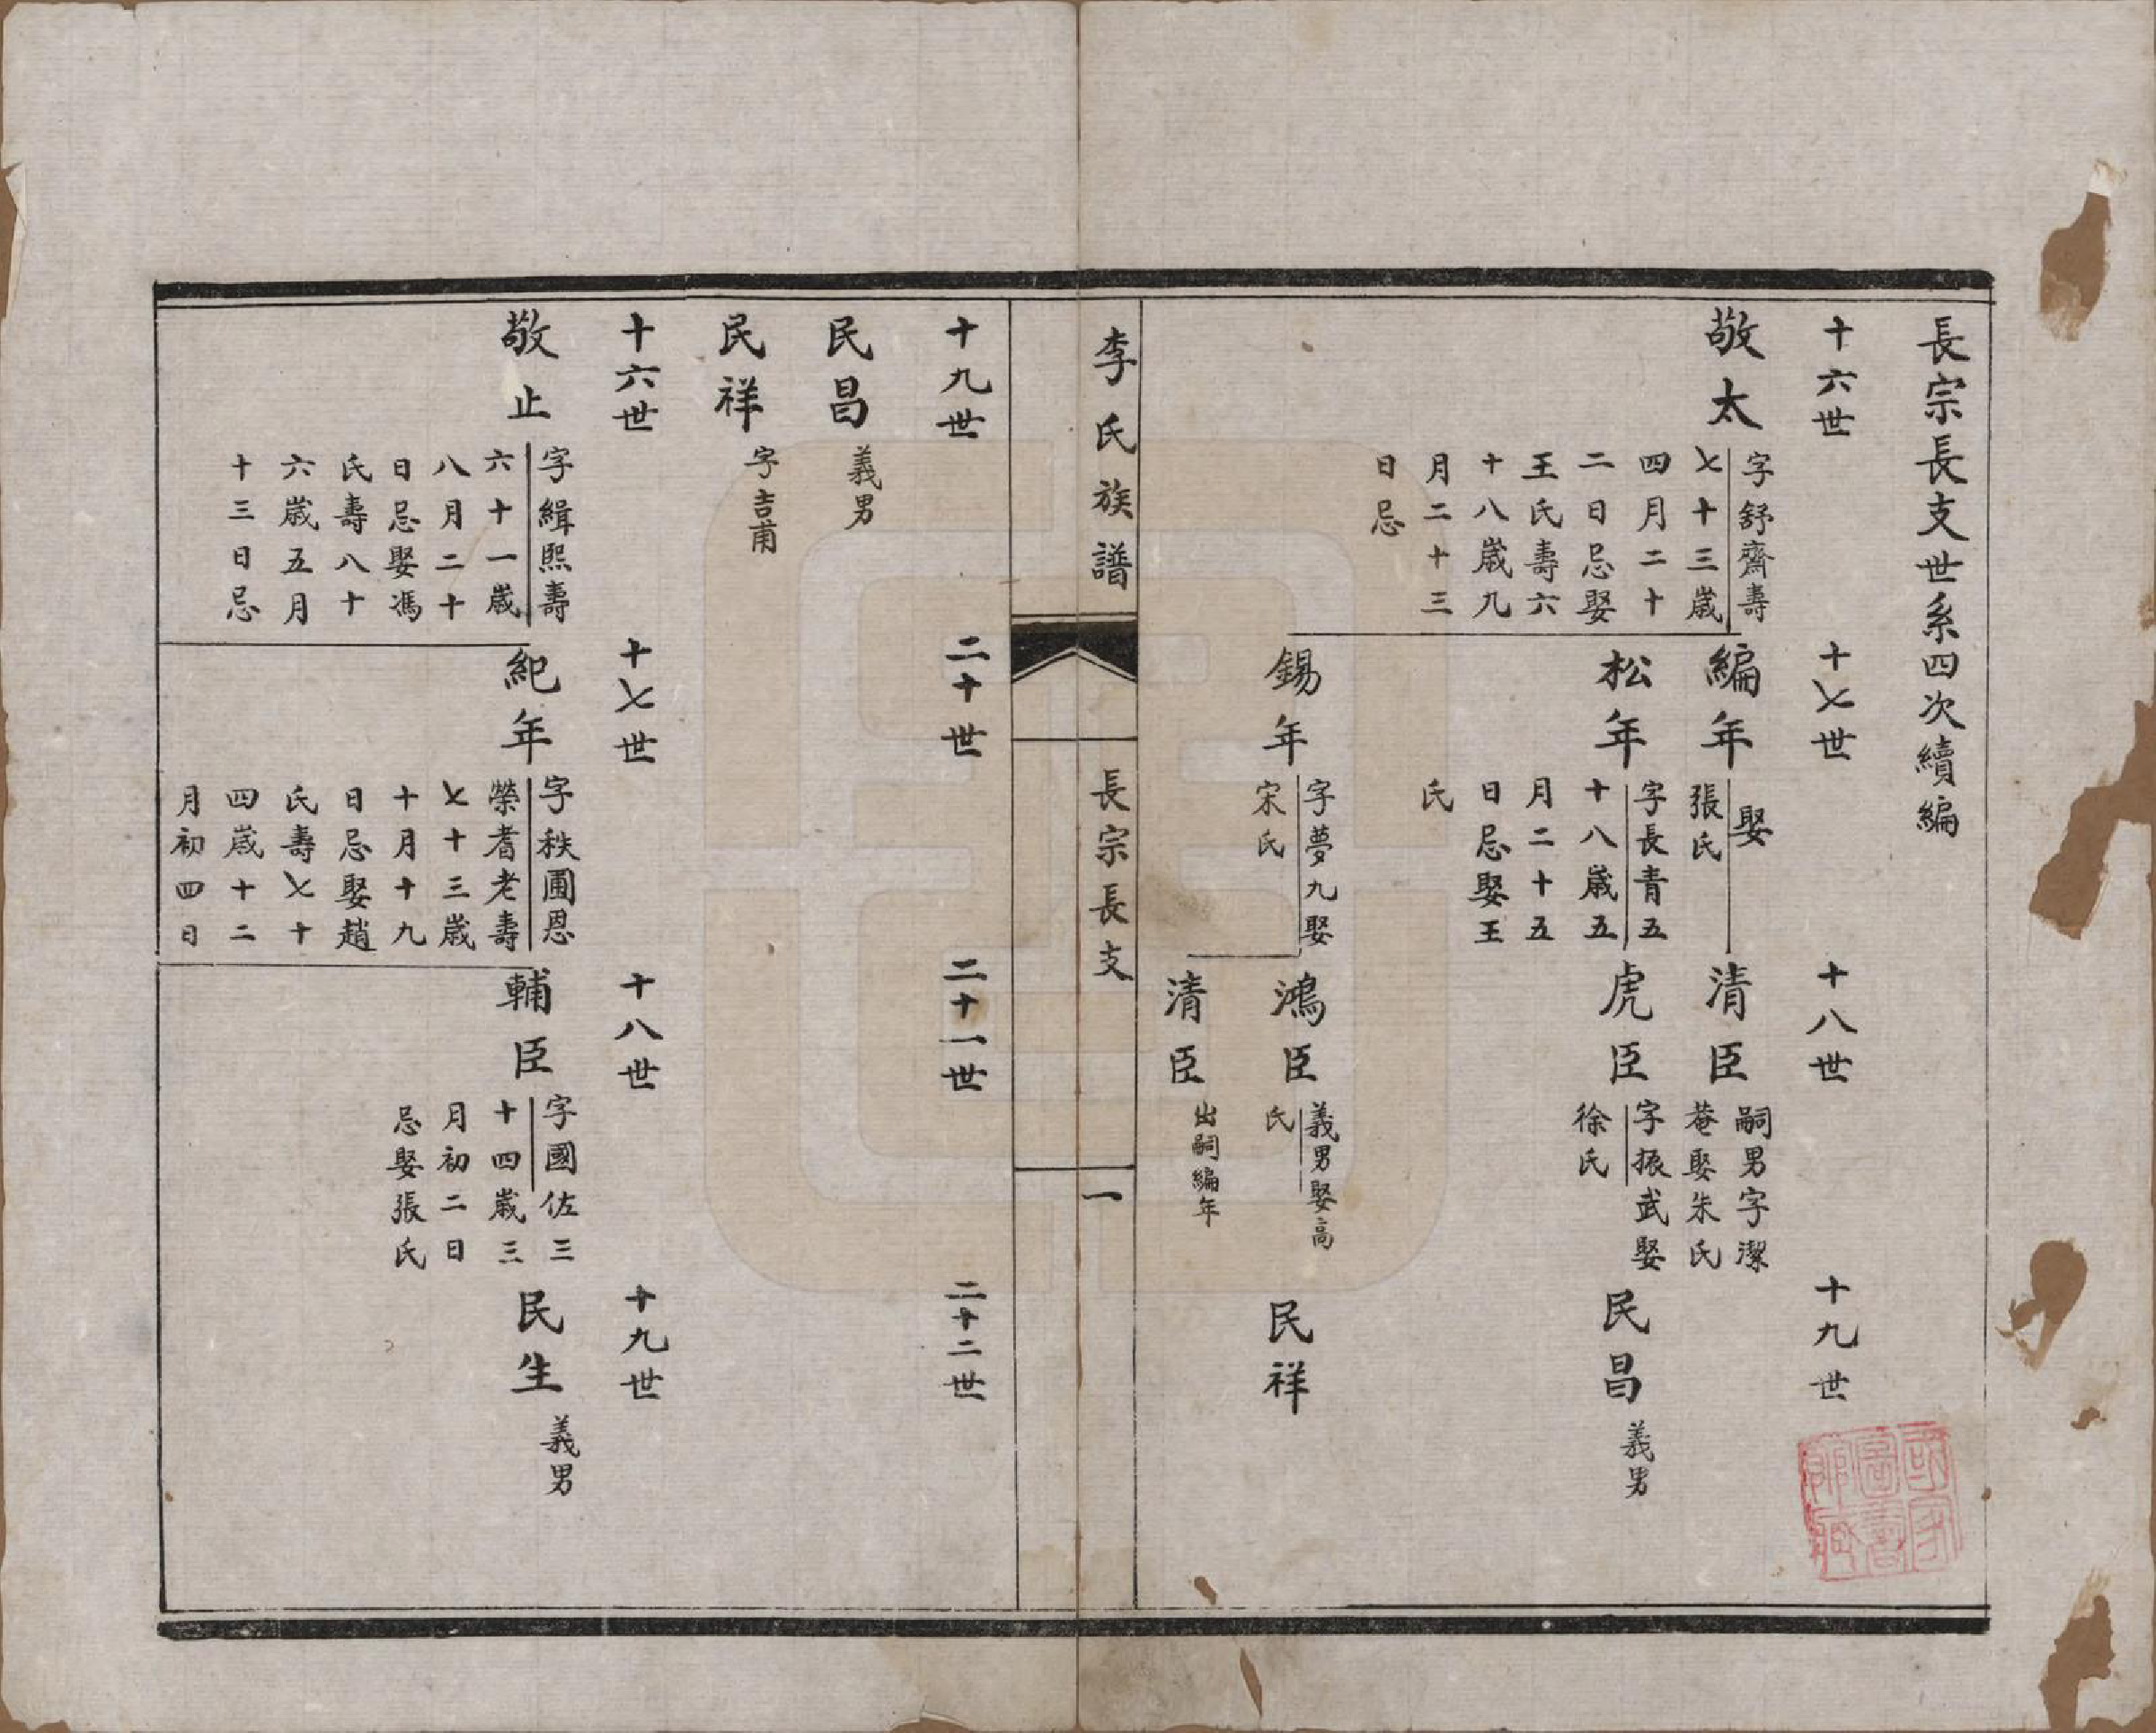 長宗長支世系四次續編
十六世
十七世
十八世
十九世
敬太
字舒齋壽
七十三歲
四月二十
二日忌娶
王氏壽六
十八歲九
月二十三
日忌
編年
娶
張氏
清臣
嗣男字潔
菴娶朱氏
松年
字長青五
十八歲五
月二十五
日忌娶王
氏
虎臣
字振武娶
徐氏
民昌
義男
錫年
字夢九娶
宋氏
鴻臣
義男娶高
氏
民祥
清臣
出嗣編年
李氏族譜
長宗長支
一
十九世
二十世
二十一世
二十二世
民昌
義男
民祥
字吉甫
十六世
十七世
十八世
十九世
敬止
字緝熙壽
六十一歲
八月二十
日忌娶馮
氏壽八十
六歲五月
十三日忌
紀年
字秩圃恩
榮耆老壽
七十三歲
十月十九
日忌娶趙
氏壽七十
四歲十二
月初四日
輔臣
字國佐三
十四歲三
月初二日
忌娶張氏
民生
義男
國家
圖書
館藏